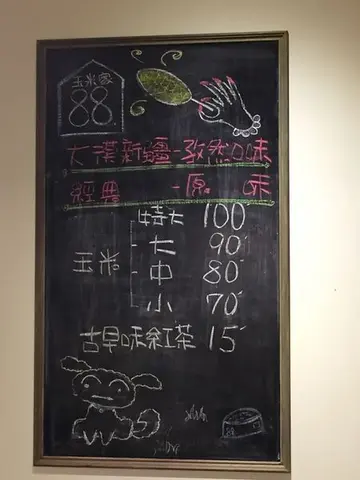 玉米家
88
大漠新疆-孜然口味
經典-原味
特大 100
大 90
玉米 中 80
小 70
古早味紅茶 15